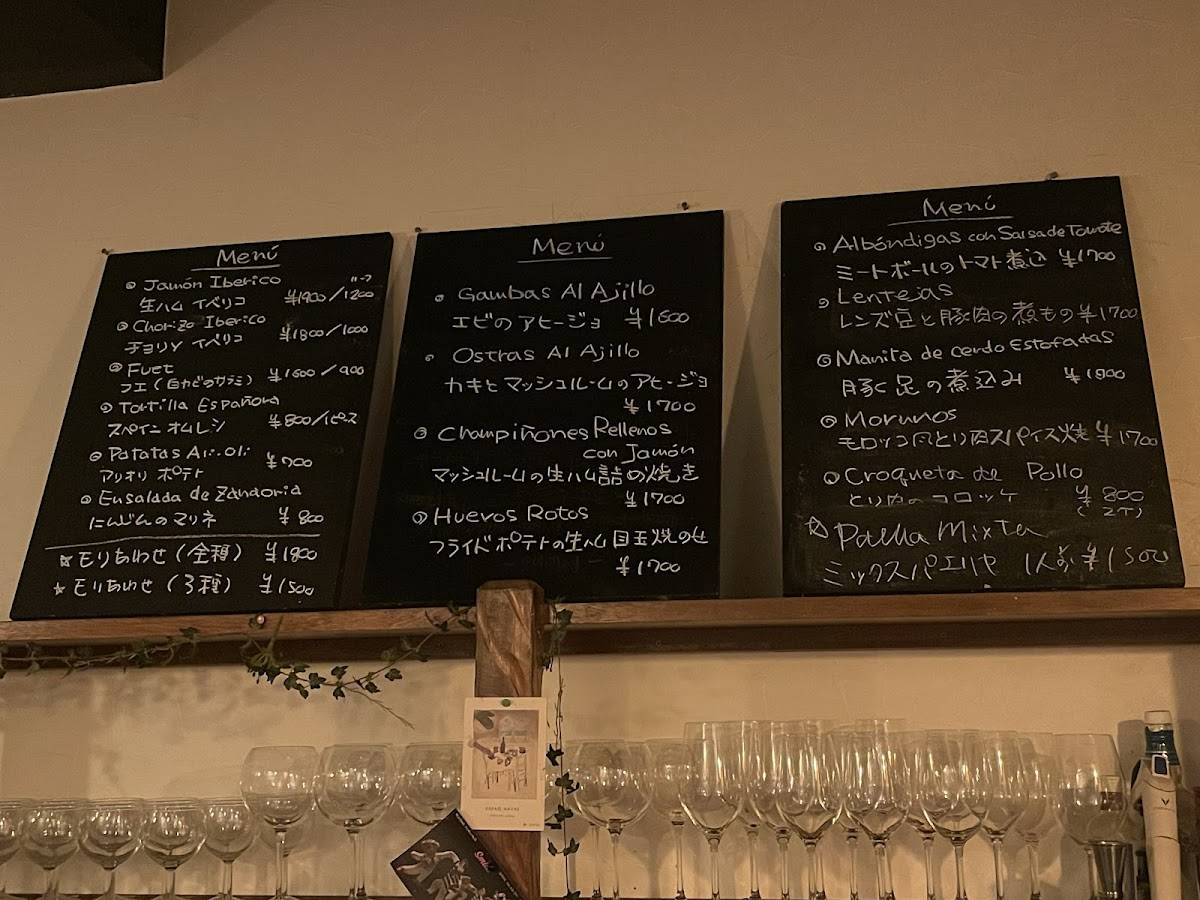 Menú
Jamón Iberico
ハーフ
生ハム イベリコ ¥1900/1200
Chorizo Iberico
チョリソ イベリコ ¥1800/1000
Fuet
フエ(白カビのサラミ) ¥1600/900
Tortilla Española
スペインオムレツ ¥800/1ピース
Patatas Ali.oli
アリオリ ポテト ¥700
Ensalada de Zanaoria
にんじんのマリネ ¥800
☆モリあわせ(全種) ¥1800
☆モリあわせ(3種) ¥1500
Menú
Gambas Al Ajillo
エビのアヒージョ ¥1600
Ostras Al Ajillo
カキとマッシュルームのアヒージョ
¥1700
Champiñones Rellenos
con Jamón
マッシュルームの生ハム詰の焼き
¥1700
Huevos Rotos
フライドポテトの生ハム目玉焼のせ
¥1700
Menú
Albóndigas con Salsa de Tomate
ミートボールのトマト煮込 ¥1700
Lentejas
レンズ豆と豚肉の煮もの ¥1700
Manita de cerdo Estofadas
豚足の煮込み ¥1800
Morunos
モロッコ風とり肉スパイス焼 ¥1700
Croqueta de Pollo
とり肉のコロッケ ¥800
(2ケ)
☆Paella Mixta
ミックスパエリヤ 1人前 ¥1500